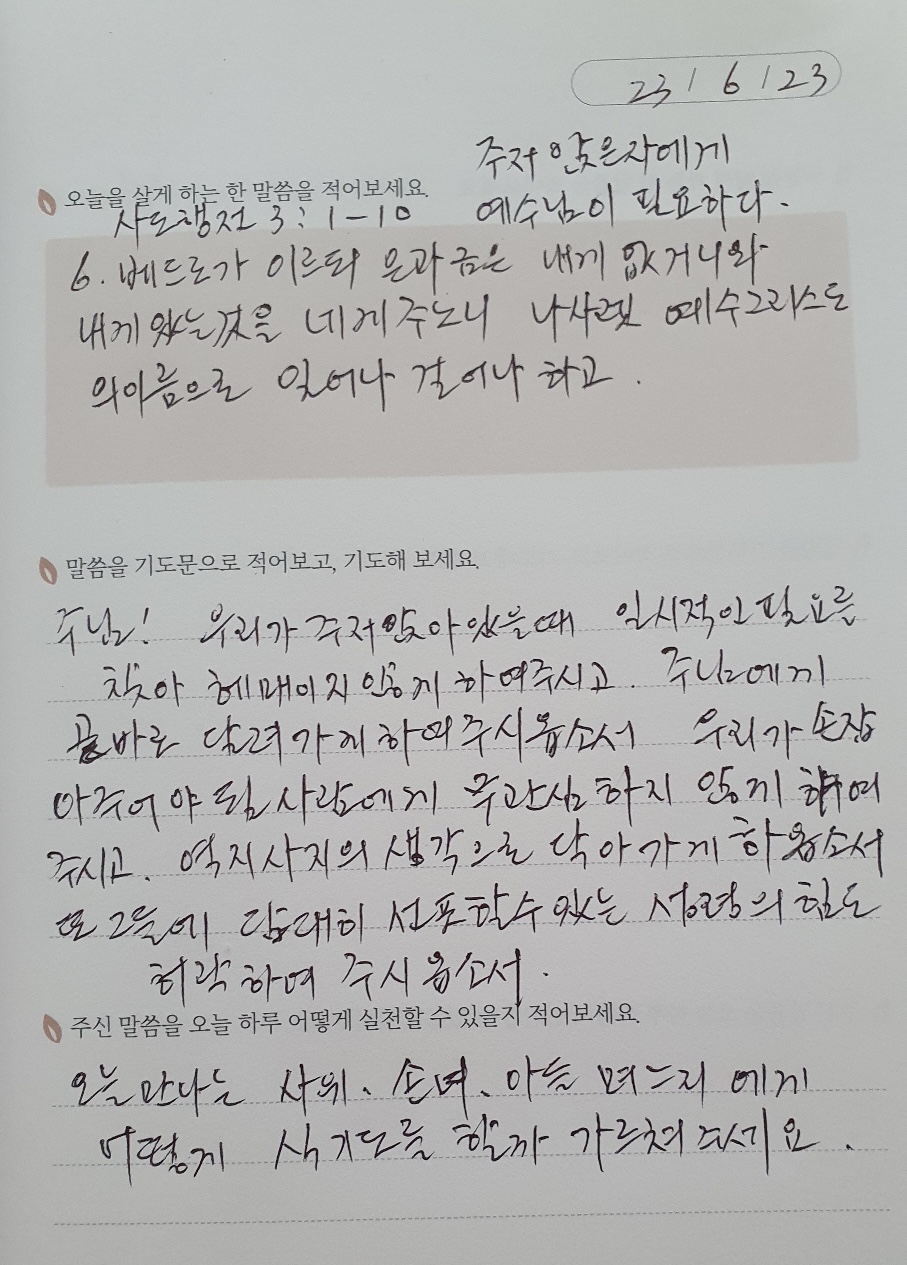 23 / 6 / 23
주저 앉은자에게
오늘을 살게 하는 한 말씀을 적어보세요.
예수님이 필요하다.
사도행전 3:1-10
6. 베드로가 이르되 은과 금은 내게 없거니와
내게 있는것을 네게 주노니 나사렛 예수그리스도
의이름으로 일어나 걸어나 하고.
말씀을 기도문으로 적어보고, 기도해 보세요.
주님! 우리가 주저앉아 있을때 일시적인 필요를
찾아 헤매이지 않게 하여주시고. 주님에게
곧바로 달려가게하여주시옵소서 우리가 손잡
아주어야 될 사람에게 무관심하지 않게 하여
주시고. 역지사지의 생각으로 닥아가게 하옵소서
또 그들에 담대히 선포할수 있는 성령의 힘도
허락하여 주시옵소서.
주신 말씀을 오늘 하루 어떻게 실천할 수 있을지 적어보세요.
오늘만나는 사위. 손녀. 아들 며느리 에게
어떻게 식기도를 할까 가르쳐 주세요.